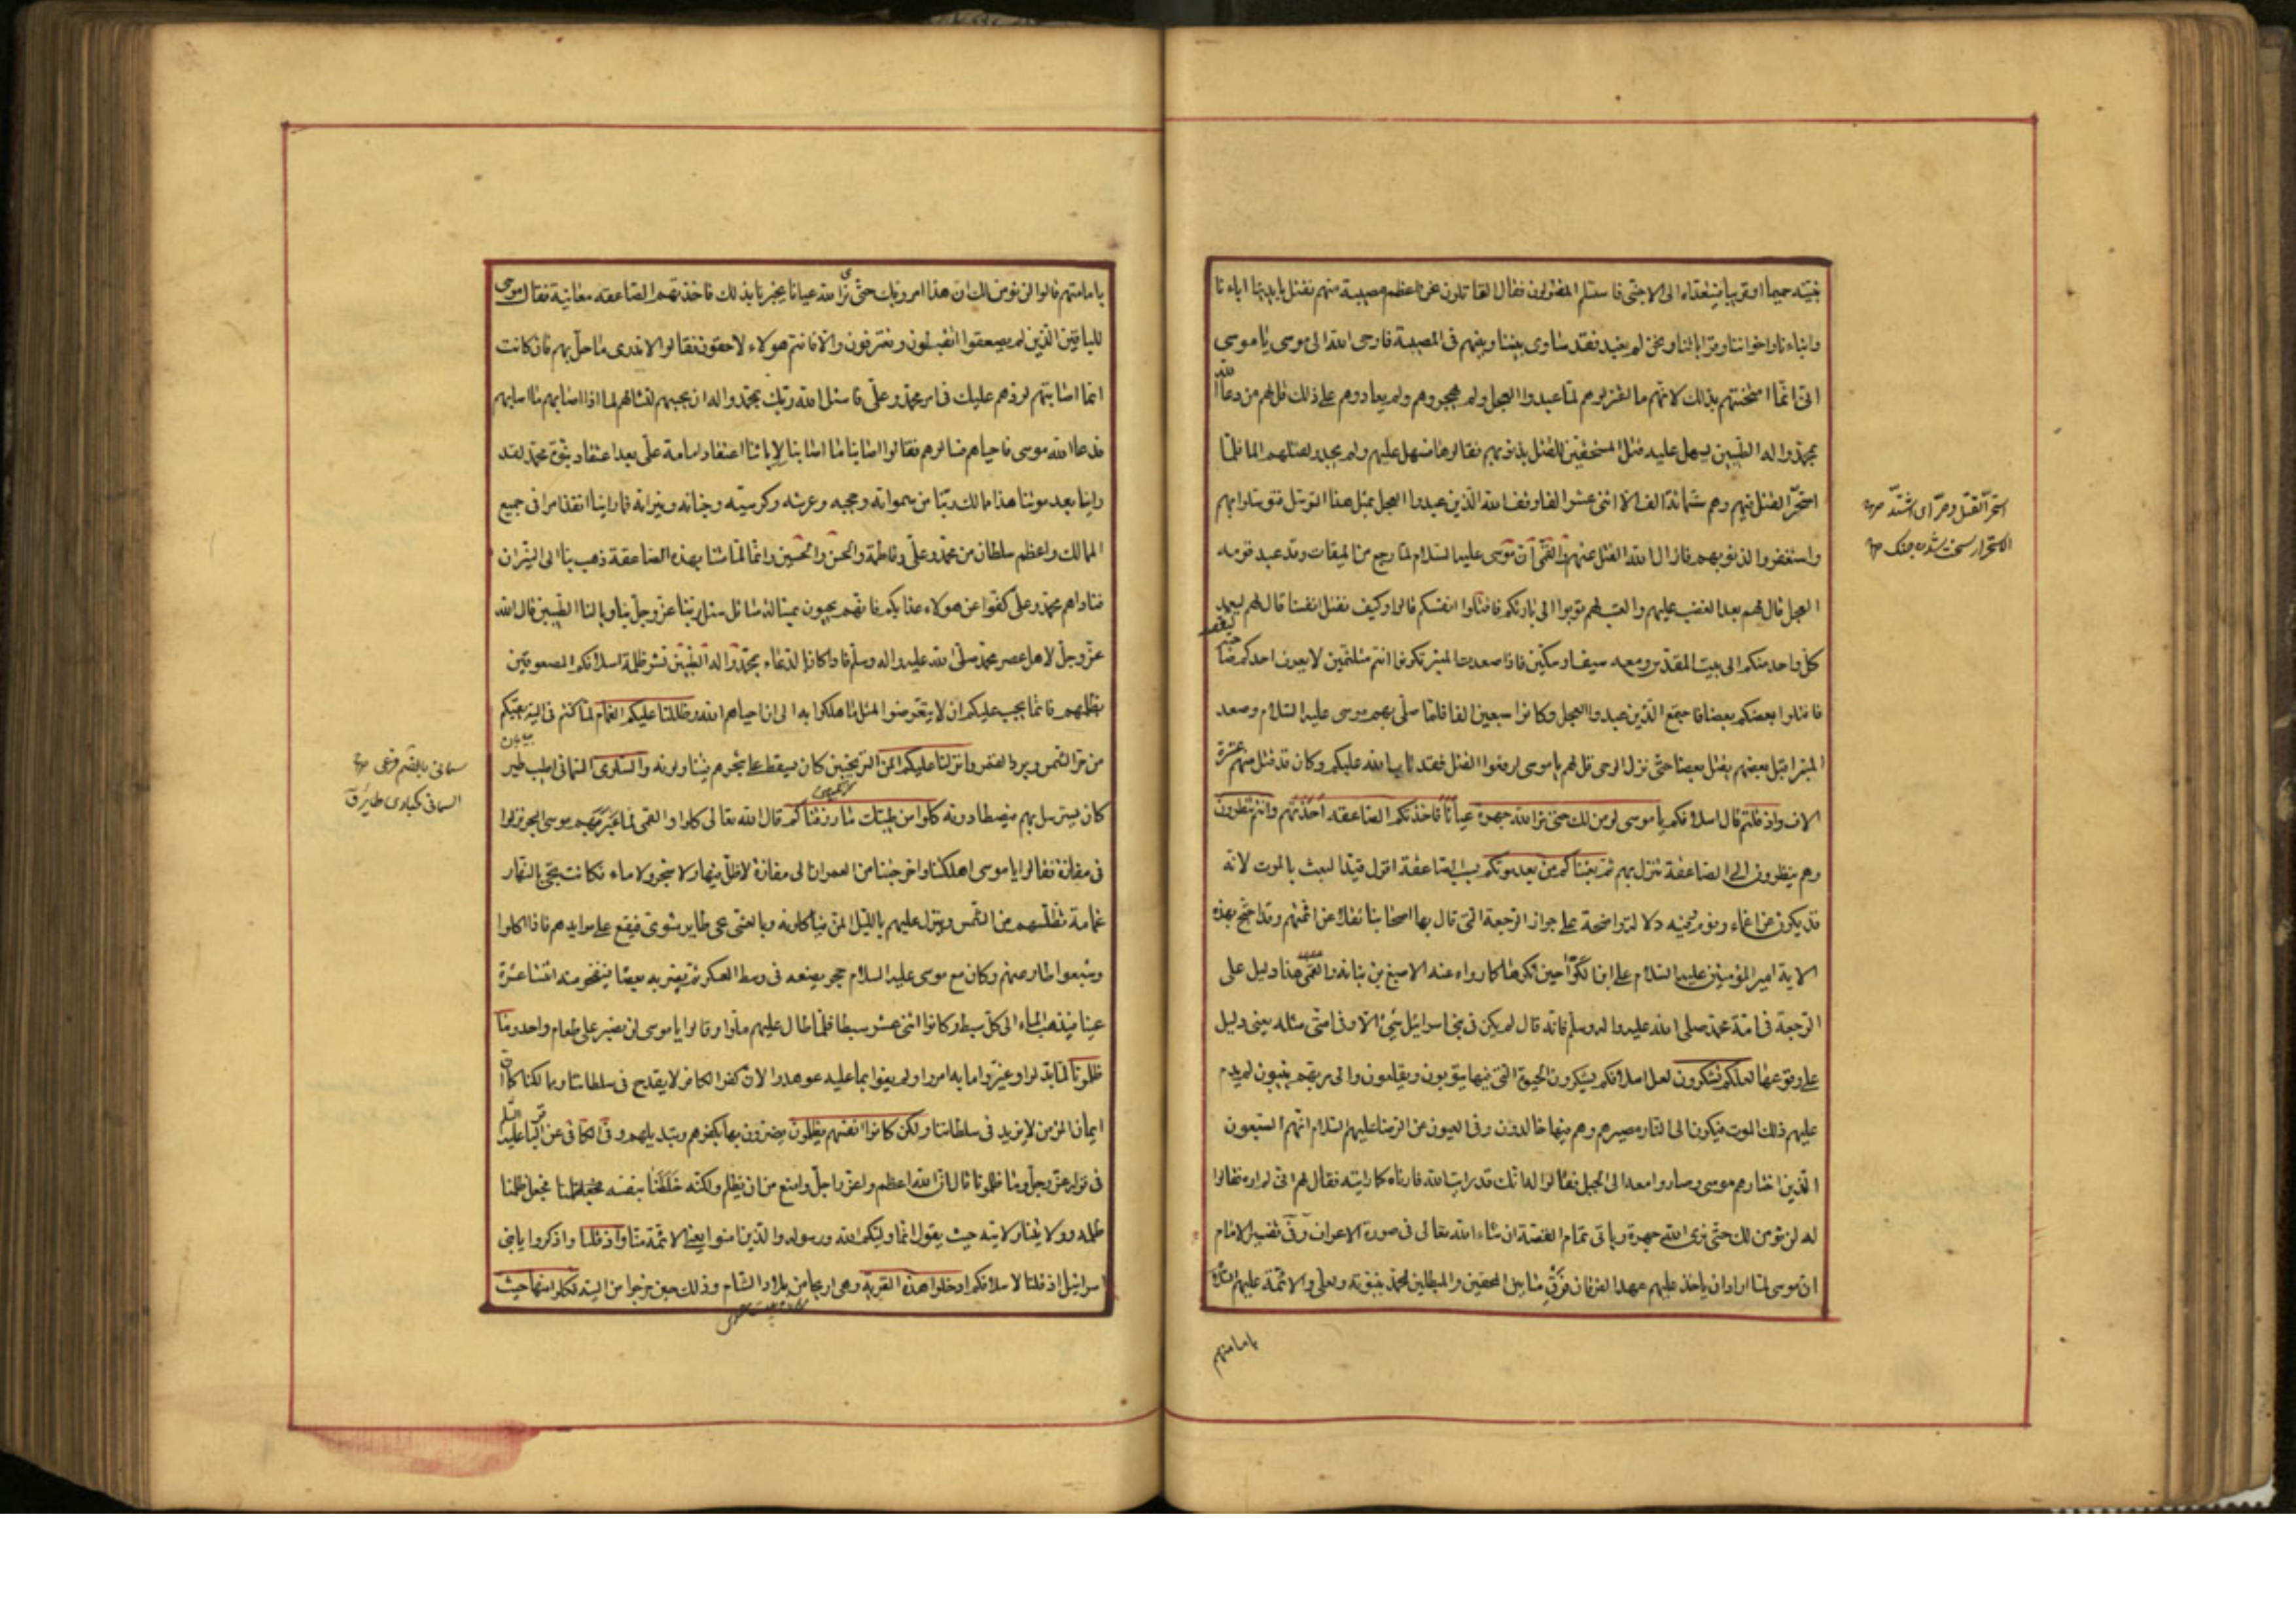 يتبيّنه حميما او قريبا فيتعدّاه الى الاجنبى فاستسلم المقتولون فقال القاتلون نحن اعظم مصيبة منهم نقتل بايدينا اباءنا
وابناءنا واخواننا وقراباتنا ونحن لم نعبد فقد ساوى بيننا وبينهم فى المصيبة فاوحى الله الى موسى يا موسى
انى انما امتحنتهم بذلك لانهم ما اعتزلوهم لما عبدوا العجل ولم يهجروهم ولم يعادوهم على ذلك قل لهم من دعا الله
بمحمد واله الطيبين يسهل عليه قتل المستحقين للقتل بذنوبهم فقالوها فسهل عليهم ولم يجدوا لقتلهم الما فلما
استحرّ القتل فيهم وهم ستمائة الف الا اثنى عشر الفا وقف الله الذين عبدوا العجل بمثل هذا التوسل فتوسلوا بهم
واستغفروا لذنوبهم فازال الله القتل عنهم والقمّى ان موسى عليه السلام لما رجع من الميقات وقد عبد قومه
العجل قال لهم بعد الغضب عليهم والعتب لهم توبوا الى بارئكم فاقتلوا انفسكم قالوا وكيف نقتل انفسنا قال لهم ليعمد
كل واحد منكم الى بيت المقدس ومعه سيف او سكين فاذا صعدت المنبر تكونوا انتم متلثمين لا يعرف احدكم صاحبه
فاقتلوا بعضكم بعضا فاجتمع الذين عبدوا العجل وكانوا سبعين الفا فلما صلى بهم موسى عليه السلام وصعد
المنبر اقبل بعضهم يقتل بعضا حتى نزل الوحى قل لهم يا موسى ارفعوا القتل فقد تاب الله عليكم وكان قد قتل منهم عشرة
الاف واذ قلتم قال اسلافكم يا موسى لن نؤمن لك حتى نرا الله جهرة عيانا فاخذتكم الصاعقة اخذتهم وانتم تنظرون
وهم ينظرون الى الصاعقة تنزل بهم ثم بعثناكم من بعد موتكم بسبب الصاعقة اقول قيد البعث بالموت لانه
قد يكون عن اغماء ونوم وفيه دلالة واضحة على جواز الرجعة التى قال بها اصحابنا نقلا عن ائمتهم وقد احتج بهذه
الاية امير المؤمنين عليه السلام على ابن الكوا حين انكرها كما رواه عنه الاصبغ بن نباته والقمى هذا دليل على
الرجعة فى امة محمد صلى الله عليه واله وسلم فانه قال لم يكن فى بنى اسرائيل شئ الا وفى امتى مثله يعنى دليل
على وقوعها لعلكم تشكرون لعل اسلافكم يشكرون الحيوة التى فيها يتوبون ويقلعون والى ربهم ينيبون لم يدم
عليهم ذلك الموت فيكون الى النار مصيرهم وهم فيها خالدون وفى العيون عن الرضا عليه السلام انهم السبعون
الذين اختارهم موسى وصاروا معه الى الجبل فقالوا له انك قد رايت الله فارناه كما رايته فقال لهم انى لم اره فقالوا
له لن نؤمن لك حتى نرى الله جهرة وياتى تمام القصة ان شاء الله تعالى فى صورة الاعراف وفى تفسير الامام
ان موسى لما اراد ان ياخذ عليهم عهد الفرقان فرّق ما بين المحقين والمبطلين لمحمد بنبوته ولعلى والائمة عليهم السلام
بامامتهم
استحرّ القتل وحرّ اى اشتدّ
الاستحرار سخت شدن جنك
بامامتهم قالوا لن نؤمن لك ان هذا امر ربك حتى نرى الله عيانا يخبرنا بذلك فاخذتهم الصاعقة معاينة فقال موسى
للباقين الذين لم يصعقوا اتقبلون وتعترفون والا فانتم هولاء لاحقون فقالوا لا ندرى ما حل بهم فان كانت
انما اصابتهم لردهم عليك فى امر محمد وعلى فاسئل الله ربك بمحمد واله ان يحييهم لنسئلهم لماذا اصابهم ما اصابهم
فدعا الله موسى فاحياهم فسالوهم فقالوا اصابنا ما اصابنا لابائنا اعتقاد امامة على بعد اعتقاد نبوة محمد لقد
راينا بعد موتنا هذا ممالك ربنا من سمواته وحجبه وعرشه وكرسيه وجنانه ونيرانه فما راينا انفذ امرا فى جميع
الممالك واعظم سلطان من محمد وعلى وفاطمة والحسن والحسين وانا لما متنا بهذه الصاعقة ذهب بنا الى النيران
فناداهم محمد وعلى كفوا عن هولاء عذابكم فانهم يحيون بمسالة سائل سئل ربنا عز وجل بنا وبالنا الطيبين قال الله
عز وجل لاهل عصر محمد صلى الله عليه واله وسلم فاذا كان الدعاء بمحمد واله الطيبين نشر ظلمة اسلافكم المصعوقين
بظلمهم فانما يجب عليكم ان لا تتعرضوا لمثل ما هلكوا به الى ان احياهم الله وظللنا عليكم الغمام لما كنتم فى التيه يقيكم
من حر الشمس وبرد القمر وانزلنا عليكم المن الترنجبين كان يسقط على شجرهم فيتناولونه والسلوى السمانى اطيب طير
كان يسترسل بهم فيصطادونه كلوا من طيبات ما رزقناكم قال الله تعالى كلوا والقمى لما عبر بهم موسى البحر نزلوا
فى مفازة فقالوا يا موسى اهلكتنا واخرجتنا من العمران الى مفازة لا ظل فيها ولا شجر ولا ماء فكانت تجئ بالنهار
غمامة تظلهم من الشمس وينزل عليهم بالليل المن فياكلونه وبالعشى يجئ طاير مشوى فيقع على موايدهم فاذا اكلوا
وشبعوا طار عنهم وكان مع موسى عليه السلام حجر يضعه فى وسط العسكر ثم يضربه بعصا فينفجر منه اثنتا عشرة
عينا فيذهب الماء الى كل سبط وكانوا اثنى عشر سبطا فلما طال عليهم ملوا وقالوا يا موسى لن نصبر على طعام واحد وما
ظلمونا لما بدلوا وغيروا ما به امروا ولم يفوا بما عليه عوهدوا لان كفر الكافر لا يقدح فى سلطاننا وممالكنا كما ان
ايمان المؤمن لا يزيد فى سلطاننا ولكن كانوا انفسهم يظلمون يضرون بها بكفرهم وتبديلهم وفى الكافى عن الباقر عليه السلام
فى قوله عز وجل وما ظلمونا قال ان الله اعظم واعز واجل وامنع من ان يظلم ولكنه خلطنا بنفسه فجعل ظلمنا
ظلمه وولايتنا ولايته حيث يقول انما وليكم الله ورسوله والذين امنوا يعنى الائمة منا واذ قلنا واذكروا يا بنى
اسرائيل اذ قلنا لاسلافكم ادخلوا هذه القرية وهى اريحا من بلاد الشام وذلك حين خرجوا من التيه فكلوا منها حيث
السمانى كحبارى طاير ق